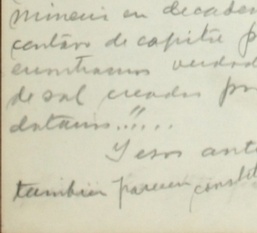 minería en decaden
centavo de capital p
encontramos verdad
de sal creados por
datarios."...
Y esos ant
tambien parecen constit